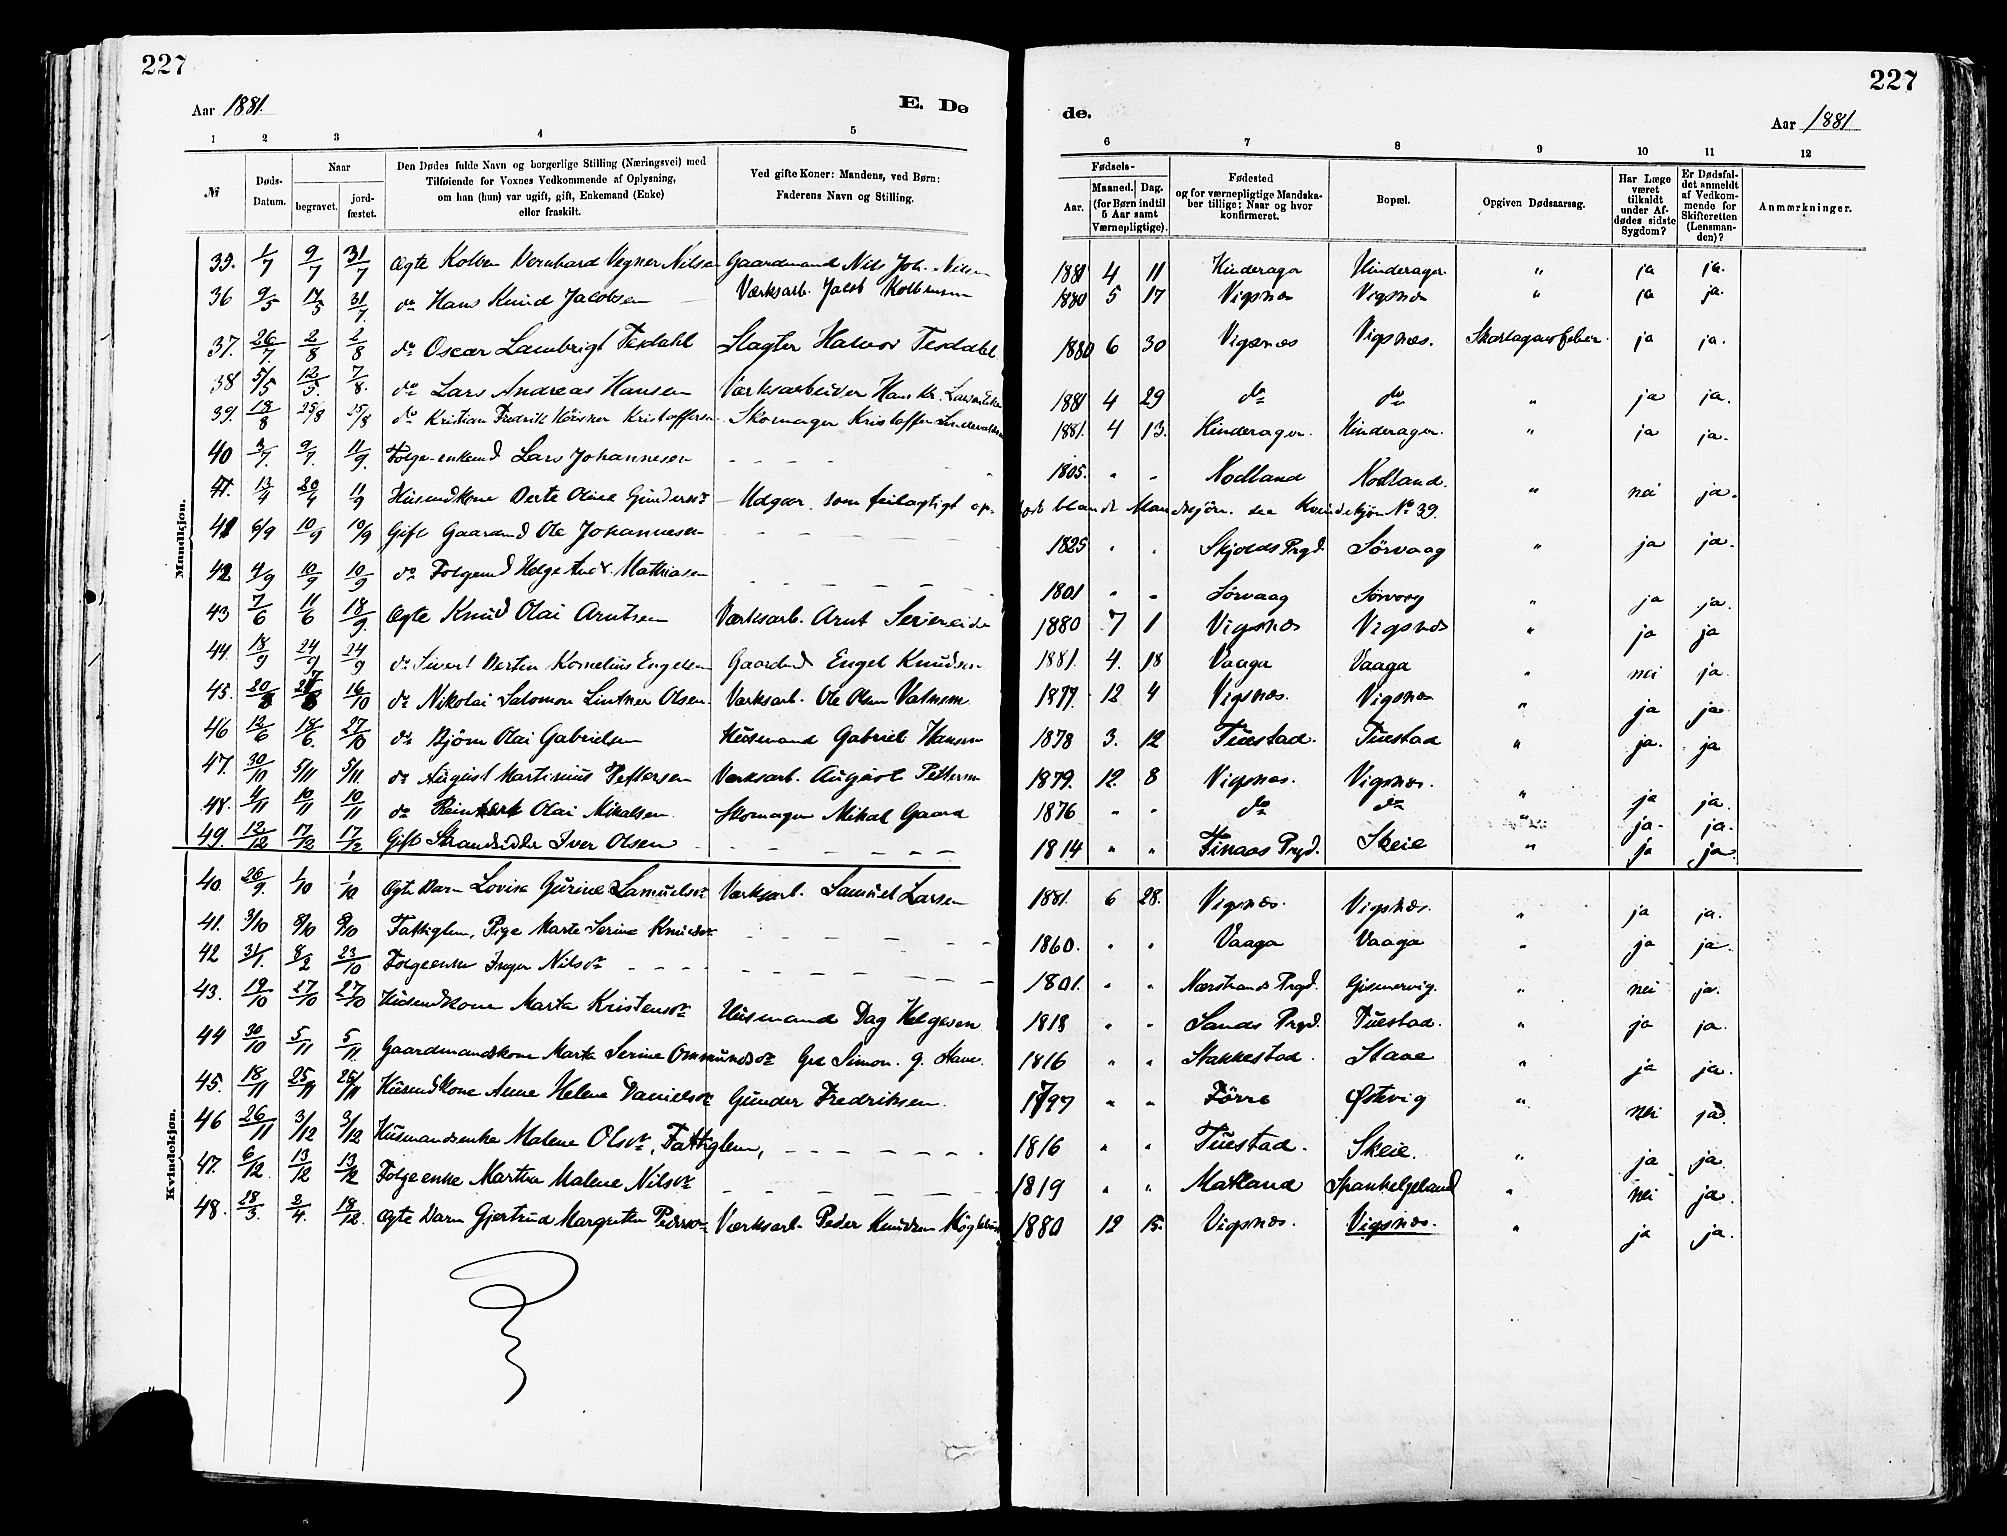 227
227
Aar 1881.
E. Dø
de.
Aar 1881
1 2 3 4 5 6 7 8 9 10 11 12
№
Døds-Datum.
Naar
begravet.
jord-fæstet.
Den Dødes fulde Navn og borgerlige Stilling (Næringsvei) med
Tilføiende for Voxnes Vedkommende af Oplysning,
om han (hun) var ugift, gift, Enkemand (Enke)
eller fraskilt.
Ved gifte Koner: Mandens, ved Børn:
Faderens Navn og Stilling.
Fødsels-
Aar.
Maaned. Dag.
(for Børn indtil
5 Aar samt
Værnepligtige).
Fødested
og for værnepligtige Mandska-
ber tillige: Naar og hvor
konfirmeret.
Bopæl.
Opgiven Dødsaarsag.
Har Læge
været
tilkaldt
under Af-
dødes sidste
Sygdom?
Er Dødsfal-
det anmeldt
af Vedkom-
mende for
Skifteretten
(Lensman-
den)?
Anmærkninger.
Mandkjøn.
39. 1/7 9/7 31/7 Ægte Bernhard Vegner Nilsen Gaardmand Nils Joh. Nilsen 1881 4 11 Hinderager Hinderager " ja ja.
36 9/5 17/5 31/7 do Hans Knud Jacobsen Værksarb. Jacob 1880 5 17 Vigsnes Vigsnes " ja ja.
37. 26/7. 2/8 2/8 do Oscar Lambrigt Tesdahl Slagter Halvor Tesdahl 1880 6 30 Vigsnes Vigsnes. Skarlagensfeber ja ja.
38 5/5 12/5. 7/8. do Lars Andreas Hansen Værksarbeider Hans Kr. 1881 4 29 do do " ja ja.
39. 18/8 25/8 25/8 do Kristian Fredrik Kristoffersen Skomager Kristoffer 1881. 4 13. Hinderager. Hinderager. " ja ja.
40 3/7. 9/7. 11/9. Folge-enkemd Lars Johannesen - - - - 1805. " - Nodland Nodland. " nei ja.
41. 13/4 20/4 11/9 Husmdkone Berte Oline Gundersdr - Udgaar, som feilagtigt opført blandt Mandkjøn. see Kvindekjøn No 39.
41 6/9 10/9 10/9 Gift Gaardmd Ole Johannesen - - - - 1825 " " Skjolds Prgd. Sørvaag " ja ja.
42 4/9 10/9 10/9 do Folgemd Helge Andr. Mathiasen - - - - 1801 " " Sørvaag Sørvaag " ja ja.
43 7/6 11/6 18/9. Ægte Knud Olai Arntsen Værksarb. Arnt 1880 7 1 Vigsnes Vigsnes " ja ja
44. 18/9 24/9 24/9 do Sivert Bertin Kornelius Engelsen Gaardmd Engel Knudsen 1881. 4. 18 Vaaga Vaaga " nei ja.
45. 20/8 16/10 do Nikolai Salomon Lintner Olsen. Værksarb. Ole Olsen 1877. 12 4 Vigsnes. Vigsnes " ja ja.
46 12/6 18/6. 27/10 do Bjørn Olai Gabrielsen Husmand Gabriel Hansen 1878 3. 12 Tuestad. Tuestad " ja. ja
47. 30/10 5/11 5/11 do August Martinius Pettersen Værksarb. August Pettersen 1879. 12. 8 Vigsnes. Vigsnes. " ja ja.
48. 4/11 10/11 10/11 do Olai Mikalsen. Skomager Mikal Gaard 1876 " " do do " ja. ja.
49. 12/12 17/12 17/12 Gift Strandsidder Iver Olsen - - - - 1814 " " Finaas Prgd. Skeie " ja ja.
Kvindekjøn.
40. 26/9. 1/10 1/10 Ægte Barn Lovise Gurine Samuelsdr Værksarb. Samuel Larsen 1881. 6 28. Vigsnes. Vigsnes. " ja ja.
41. 3/10 8/10 8/10 Fattiglem, Pige Marte Serine Knudsdr - - - - 1860. " " Vaaga Vaaga " ja ja.
42 31/1. 8/2 23/10 Folgeenke Inger Nilsdr - - - - 1801. " " Nærstrands Prgd. Gismervig. " nei ja.
43. 19/10 27/10 27/10 Husmdkone Marta Kristensdr Husmand Dag Helgesen 1818 " " Sands Prgd. Tuestad. " ja ja.
44 30/10 5/11 5/11 Gaardmandskone Marta Serine Ommundsdr Grd Simon. G. Stave. 1816 " " Stakkestad. Stave " ja ja.
45. 18/11 25/11 25/11 Husmdkone Anne Helene Danielsdr Gunder Fredriksen. 1797 " " Førre Østvig " nei ja.
46 26/11 3/12 3/12 Husmandsenke Malene Olsdr, Fattiglem, - - - - 1816 " " Tuestad. Skeie. " ja ja.
47. 6/12 13/12 13/12 Folgeenke Martha Malene Nilsdr - - - - 1819 " " Matland Spanhelgeland " nei ja.
48. 28/3. 2/4. 18/12. Ægte Barn Gjertrud Margrethe Pedersdr Værksarb. Peder Knudsen 1880 12 15. Vigsnes. Vigsnes. " ja ja.